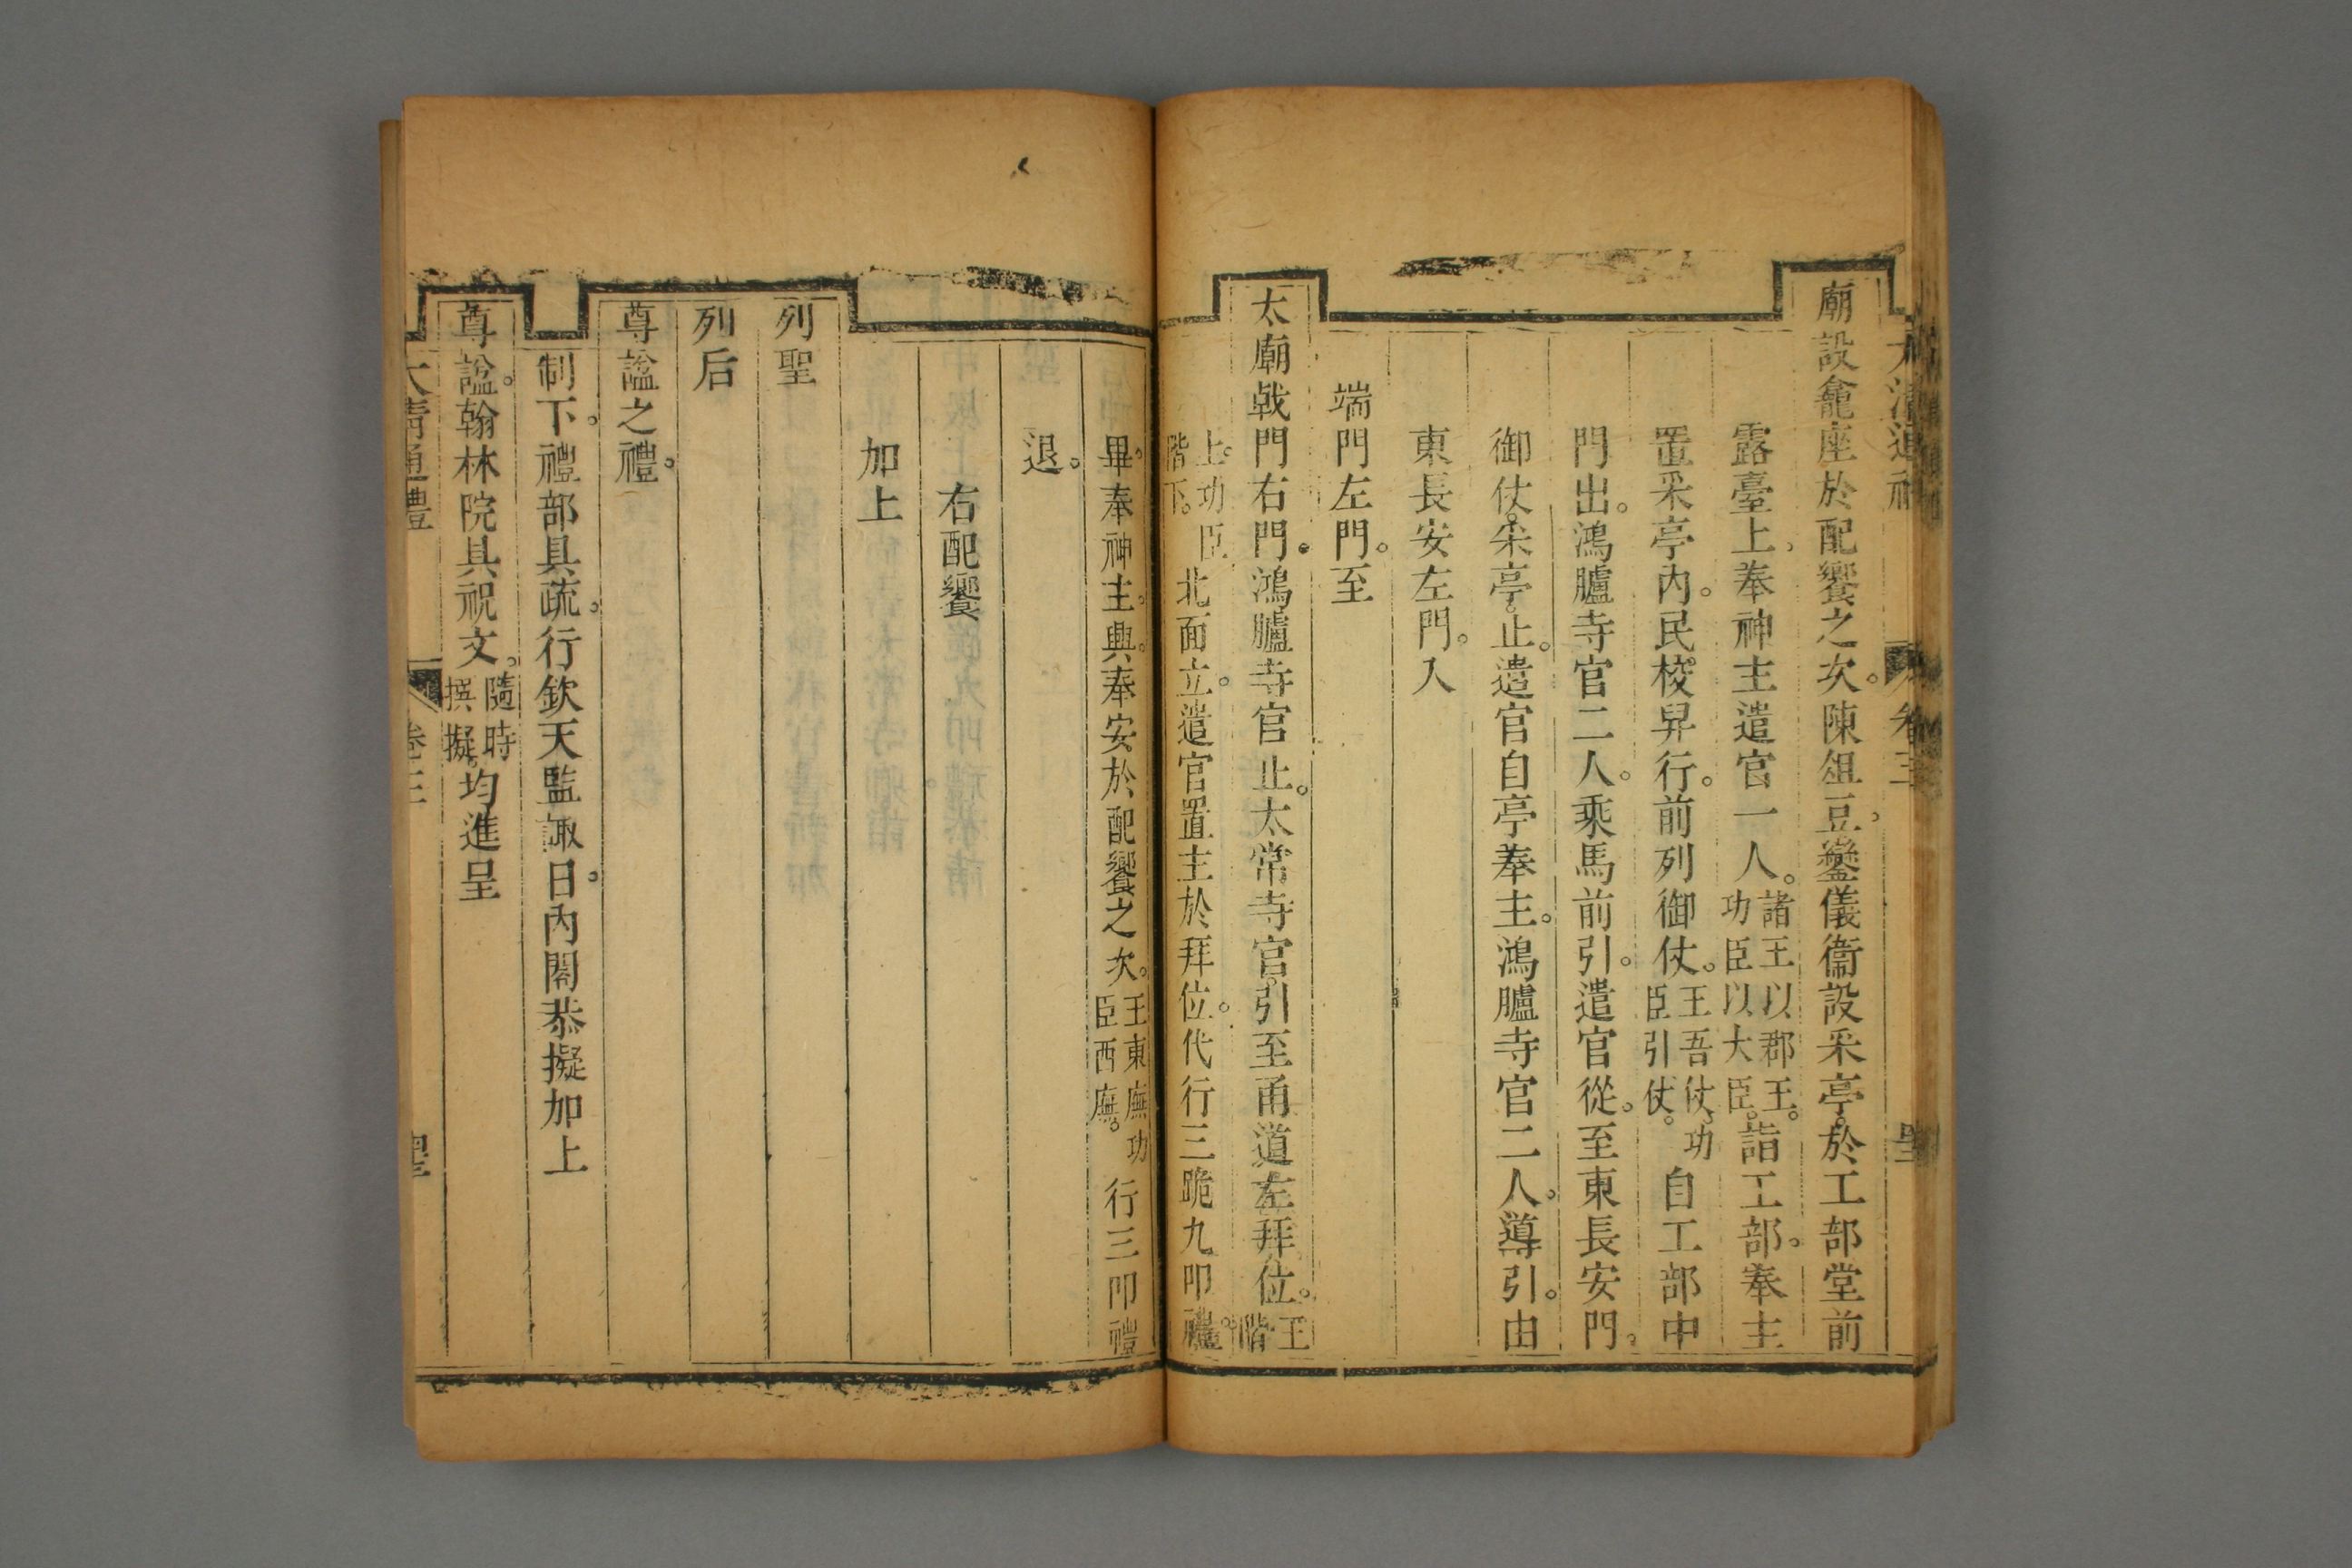 廟設龕座於配饗之次。陳俎豆。鑾儀衞設采亭。於工部堂前
露臺上。奉神主遣官一人。諸王以郡王。功臣以大臣。詣工部。奉主
置采亭內。民校舁行。前列御仗。王吾仗。功臣引仗。自工部中
門出。鴻臚寺官二人。乘馬前引。遣官從。至東長安門。
御仗。采亭。止。遣官自亭奉主。鴻臚寺官二人。導引。由
東長安左門。入
端門左門。至
太廟戟門右門。鴻臚寺官止。太常寺官。引至甬道左拜位。王階
上。功臣階下。北面立。遣官置主於拜位。代行三跪九叩禮。
畢。奉神主。興。奉安於配饗之次。王東廡功臣西廡。行三叩禮
退。
右配饗
加上
列聖
列后
尊諡之禮。
制下。禮部具疏。行欽天監諏日。內閣恭擬加上
尊諡。翰林院具祝文。隨時撰擬。均進呈
大清通禮 卷三